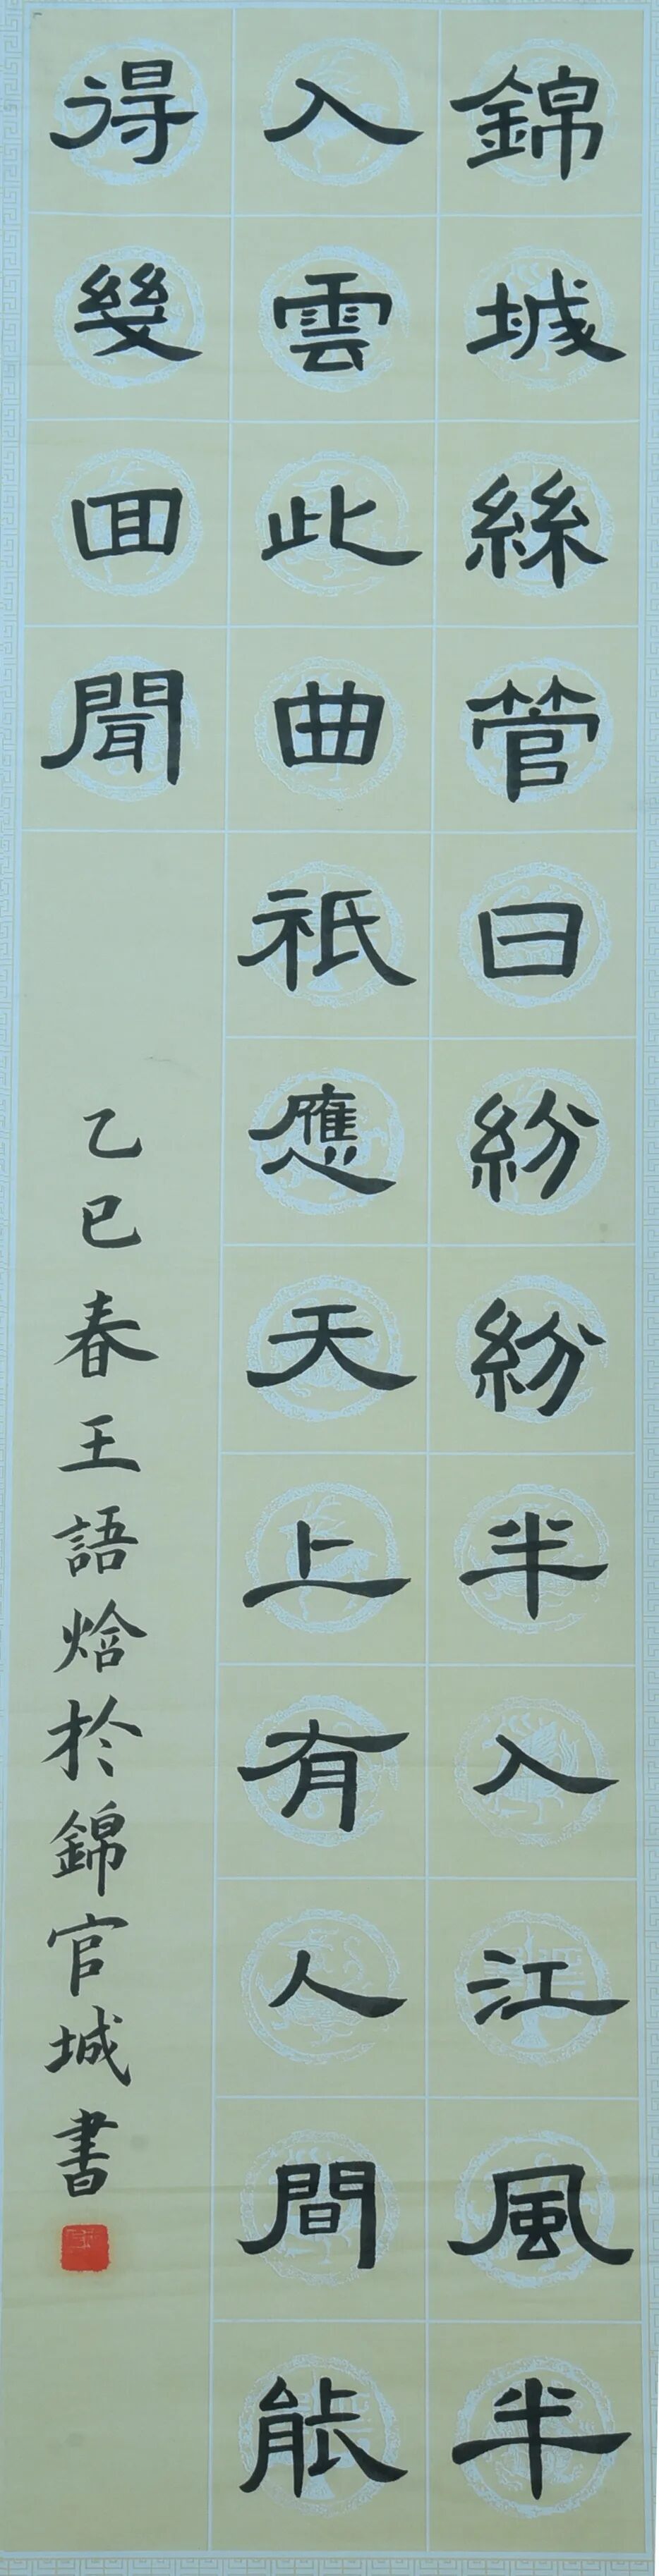 錦城絲管日紛紛半入江風半
入雲此曲祇應天上有人間能
得幾囬聞
乙巳春王語焓於錦官城書